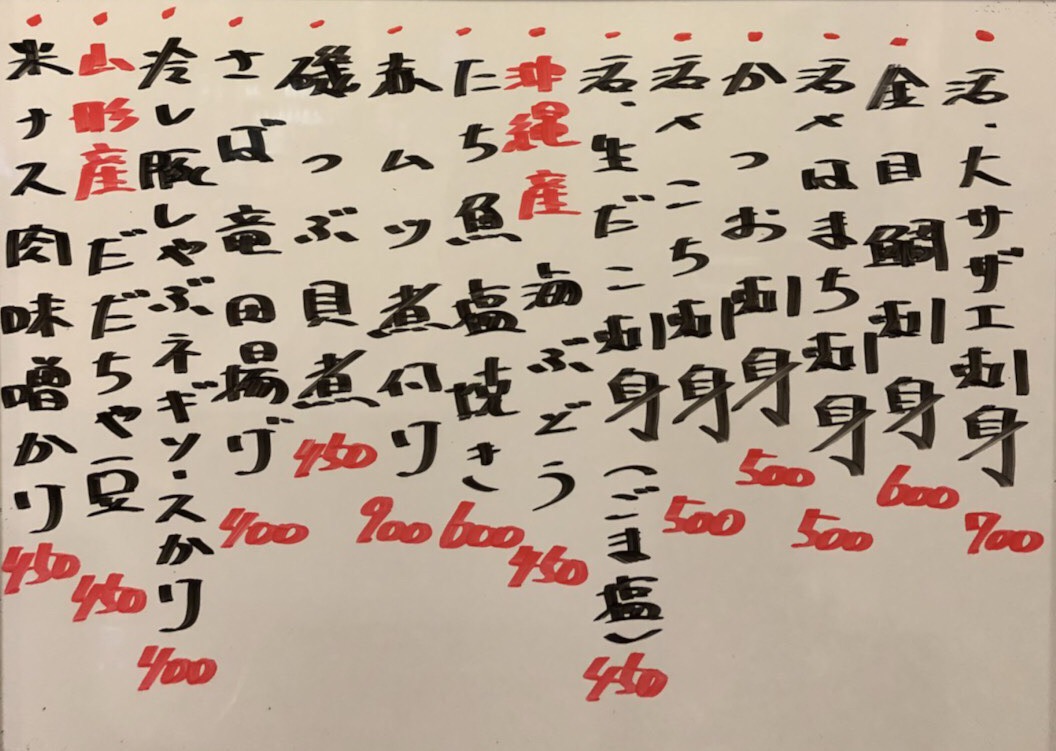 活・大サザエ刺身 700
金目鯛刺身 600
活〆はまち刺身 500
かつお刺身 500
活〆こち刺身 500
活・生だこ刺身(ごま塩) 450
沖縄産 海ぶどう 450
たち魚塩焼き 600
赤ムツ煮付け 900
磯つぶ貝煮 450
さば竜田揚げ 400
冷し豚しゃぶネギソースかけ 400
山形産だだちゃ豆 450
米ナス肉味噌かけ 450